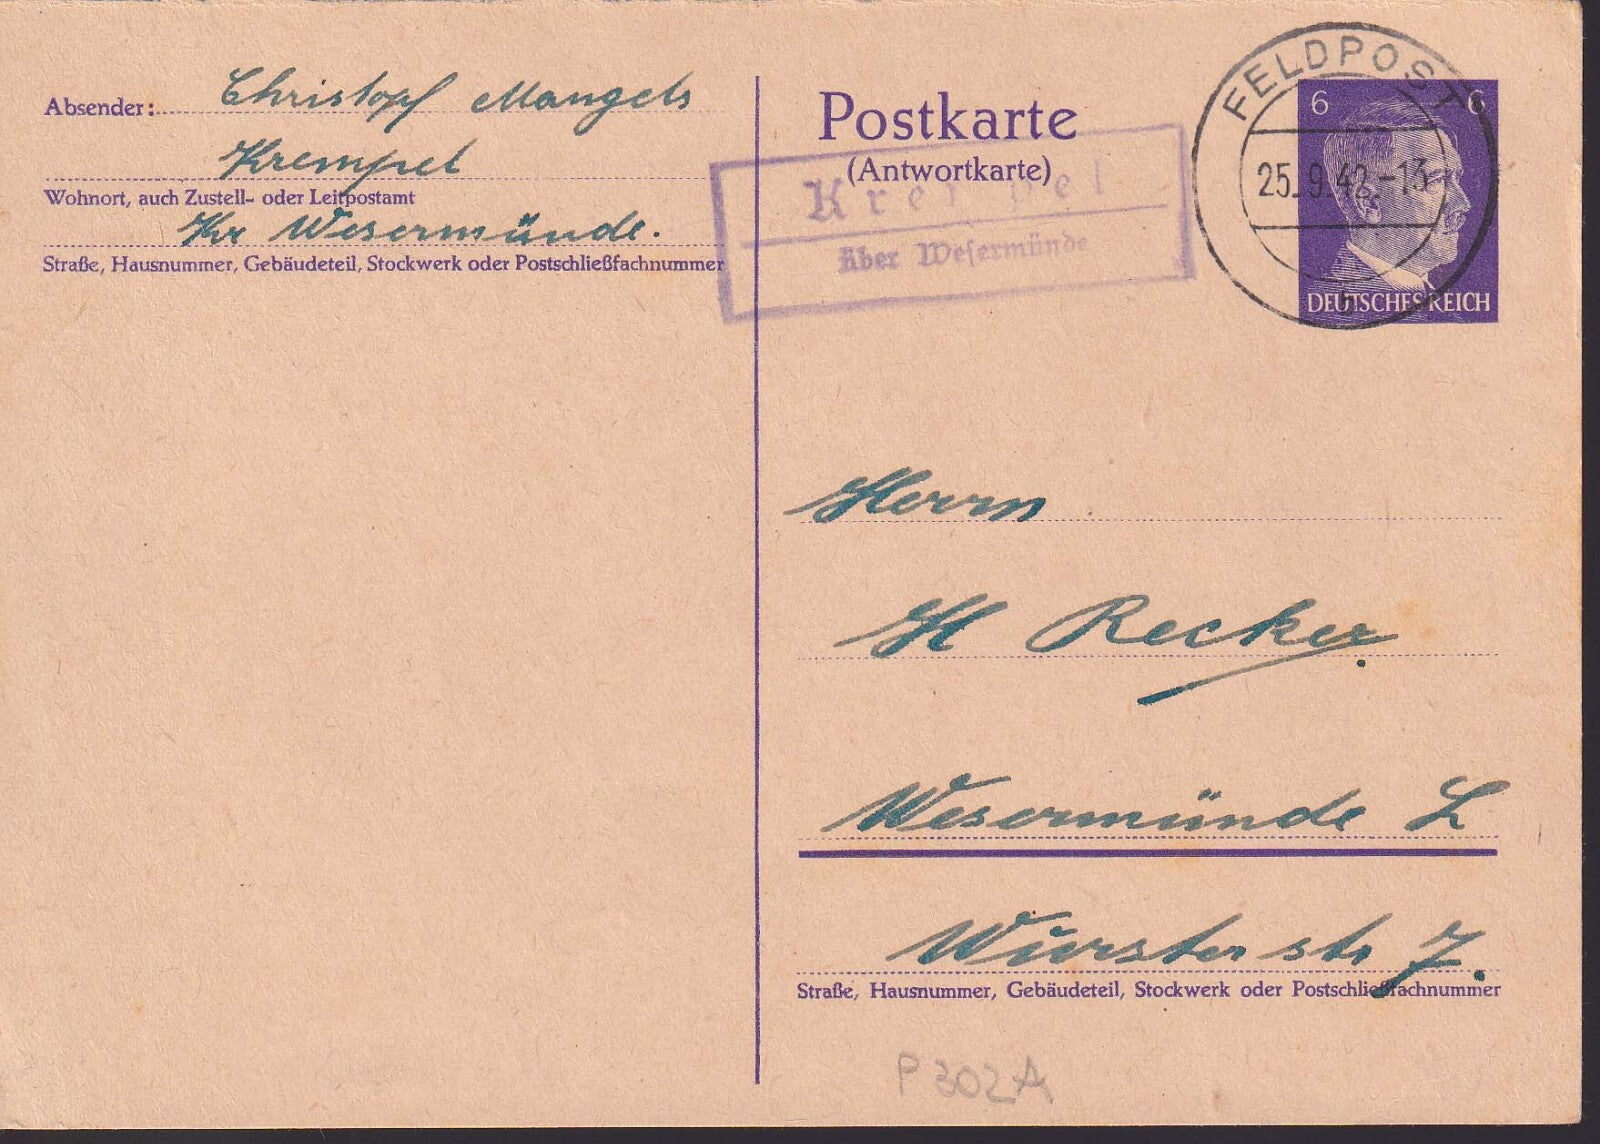 Absender: Christopf Mangels
Krempel
Wohnort, auch Zustell- oder Leitpostamt
Kr Wesermünde.
Straße, Hausnummer, Gebäudeteil, Stockwerk oder Postschließfachnummer
Postkarte
(Antwortkarte)
über Wesermünde
FELDPOST
25.9.42.-13
b
6 6
DEUTSCHES REICH
Herrn
H Recker
Wesermünde L
Wurster str 7.
Straße, Hausnummer, Gebäudeteil, Stockwerk oder Postschließfachnummer
P 302 A